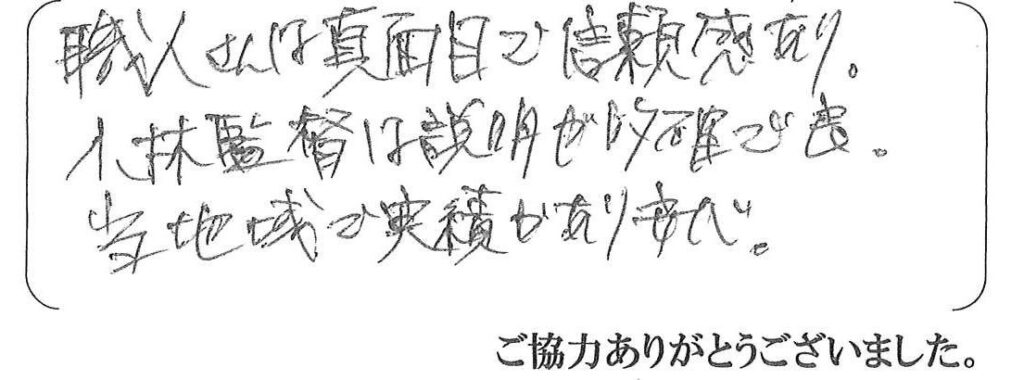 職人さんは真面目で信頼感あり。
小林監督は説明が的確で良。
当地域で実績があり安心。
ご協力ありがとうございました。